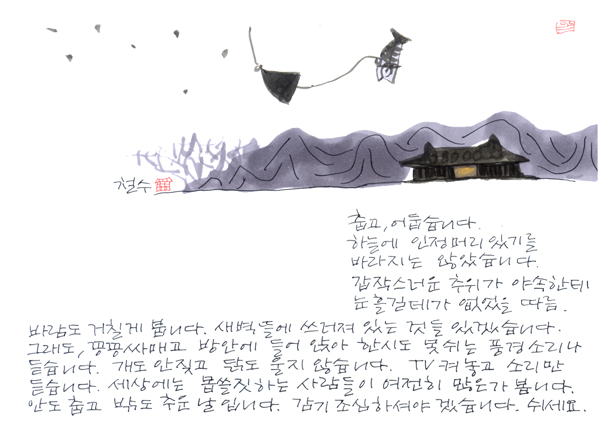 철수
춥고, 어둡습니다.
하늘에 인정머리 있기를
바라지는 않았습니다.
갑작스러운 추위가 야속한데
눈흘길데가 없었을 따름.
바람도 거칠게 붑니다. 새벽뜰에 쓰러져 있는 것들 있겠습니다.
그래도, 꽁꽁싸매고 방안에 들어 앉아 한시도 못쉬는 풍경소리나
듣습니다. 개도 안짖고 닭도 울지 않습니다. TV 켜놓고 소리만
듣습니다. 세상에는 몹쓸짓하는 사람들이 여전히 많은가 봅니다.
안도 춥고 밖도 추운 날입니다. 감기 조심하셔야 겠습니다. 쉬세요.